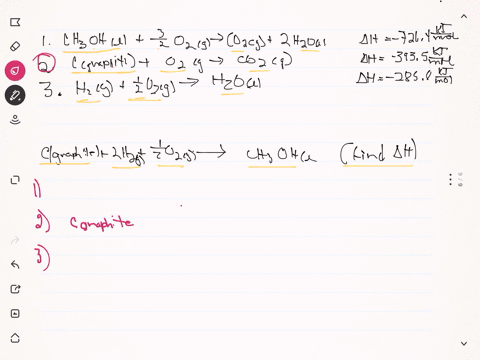 1. CH3OH(l) + 3/2 O2(g) → CO2(g) + 2H2O(l) ΔH = -726.4 KJ/mol
2 C(graphite) + O2(g) → CO2(g) ΔH = -393.5 KJ/mol
3. H2(g) + 1/2 O2(g) → H2O(l) ΔH = -285.0 KJ/mol
C(graphite) + 2H2(g) + 1/2 O2(g) → CH3OH(l) (Find ΔH)
1)
2) Cgraphite
3)